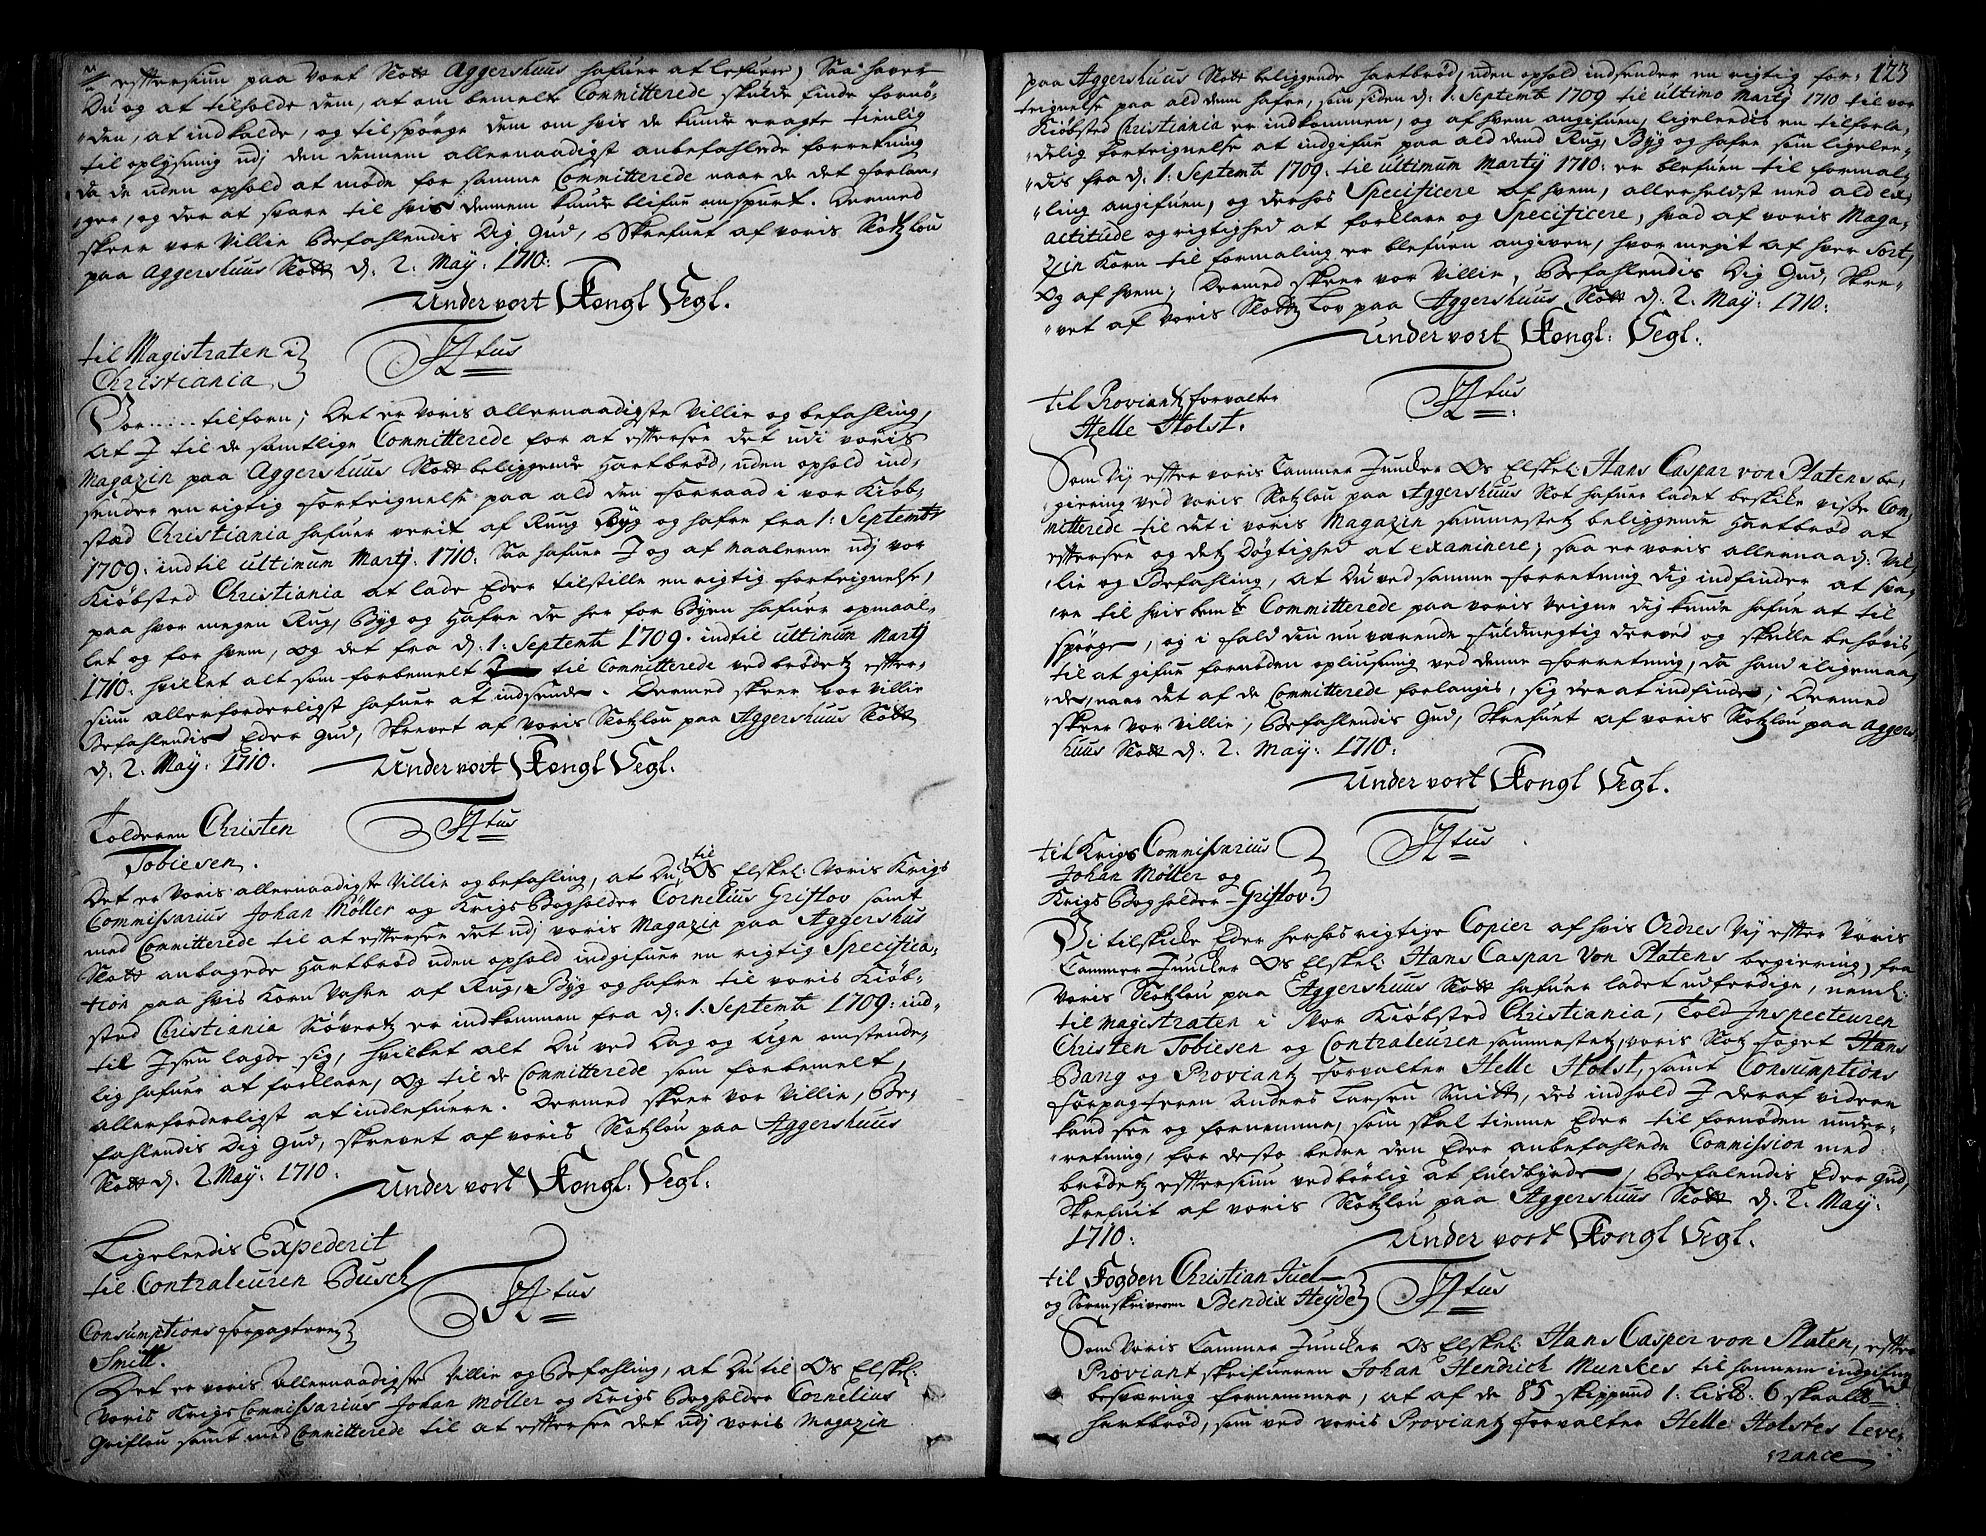 efftersiun paa Vort Slott Aggershuus hafuer at lefuere, Saa hafuer
Du og at tilholde dem, at om bemelte Committerede skulde finde fornö-
den, at indkalde, og tilspörge dem om hvis de kunde eragte tienlig
til oplysning udj den dennem allernaadigst anbefahlede forretning
da de uden ophold at möde for samme Committerede naar de det forlan-
ger, og der at svare til hvis dennem kunde blifue omspurt. Dermed
skeer vor Villie Befahlendis Dig Gud, Skrefuet af voris Slotzlou
paa Aggershuus Slott d: 2. May: 1710:
Under vort Kongl Segl.
til Magistraten i
Christiania
HAtus
Vor..... tilforn; Det er Voris allernaadigste Villie og befahling,
at I til de samtlige Committerede for at efftersee det udi voris
Magazin paa Aggershuus Slott beliggende Hartbröd, uden ophold ind-
sender en rigtig forteignelse paa ald den forraad i vor Kiöb-
stæd Christiania hafuer verit af Rug Byg og hafre fra 1: Septembr
1709: indtil ultimum Martj. 1710: Saa hafuer I og af Maalerne udj vor
Kiöbsted Christiania at lade Eder tilstille en rigtig forteignelse,
paa hvor megen Rug, Byg og Hafre de her for Byen hafuer opmaal-
let og for hvem, og det fra d: 1: Septemb 1709. indtil ultimum Martj
1710: hvilket alt som forbemelt I til Committerede ved brödetz effter-
siun allerforderligst hafuer at indsende. Dermed skeer vor Villie
Befahlendis Eder Gud, Skrevet af Voris Slotzlou paa Aggershuus Slott
d: 2. May: 1710.
Under vort Kongl Segl.
Tolderen Christen
Tobiesen.
HAtus
Det er Voris allernaadigste Villie og befahling, at Du til Os Elskel: Voris Krigs
Commissarius Johan Möller og Krigs Bogholder Cornelius Griffov samt
med Committerede til at efftersee det udj voris Magazin paa Aggershus
Slott anbagede Hartbröd uden ophold indgifuer en rigtig Specifica-
tion paa hvis Korn Vahre af Rug, Byg og hafre til voris Kiöb-
sted Christiania Siövertz er indkommen fra d: 1. Septemb 1709: ind-
til Jsen lagde sig, hvilket alt Du ved Dag og lige omstende-
lig hafuer at forklare, og til de Committerede som forbemelt,
allerforderligst at indlefuere. Dermed skeer vor Villie, Be-
fahlendis Dig Gud, skrevet af voris Slotzlou paa Aggershuus
Slott d: 2 May: 1710:
Under vort Kongl: Segl:
Ligeleedis Expederit
til Contraleuren Busch
HAtus
Consumptions forpagteren
Smitt.
Det er voris allernaadigste Villie og Befahling, at Du til Os Elskel:
Voris Krigs Commissarius Johan Möller og Krigs Bogholder Cornelius
Griflou samt med Committerede til at efftersee det udj voris Magazin
123
paa Aggershuus Slott beliggende hartbröd, uden ophold indsender en rigtig for-
teignelse paa ald dem hafre, som siden d: 1. Septemb 1709 til ultimo Martj 1710 til vor
Kiöbsted Christiania er indkommen, og af hvem angifuen, ligeleedis en tilforla-
delig forteignelse at indgifue paa ald dend Rug, Byg og hafre som ligelee-
dis fra d: 1. Septemb 1709. til ultimum Martij 1710: er blefuen til formal-
ling angifuen, og derhos Specificere af hvem, allerhelst med ald ex-
actitude og rigtighed at forklare og Specificere, hvad af voris Maga-
zin Korn til formaling er blefuen angiven, hvor megit af hver Sort,
Og af hvem; Dermed skeer vor Villie, Befahlendis Dig Gud, Skre-
vet af Voris Slottz Lov paa Aggershuus Slott d: 2. May: 1710:
Under vort Kongl: Segl.
til Proviantforvalter
Helle Holst.
HAtus
Som Vj effter voris Cammer Juncker Os Elskel: Hans Caspar von Platens be-
giering ved Voris Slotzlou paa Aggershuus Slot hafuer ladet beskike visse Com-
mitterede til det i voris Magazin sammestetz beliggende Hartbröd at
efftersee og detz dögtighed at examinere; saa er voris allernaad: Vil-
lie og Befahling, at Du ved samme forretning Dig indfinder at sva-
re til hvis bemte Committerede paa voris Veigne Dig kunde hafue at til
spörge, og i fald din nu værende fuldmegtig derved og skulle behövis
til at gifue fornöden oplysning ved denne forretning, da hand iligemaa-
de, naar det af de Committerede forlangis, sig der at indfinde; Dermed
skeer Vor Villie, Befahlendis Gud, Skrefuet af voris Slotzlou paa Aggers-
huus Slott d: 2. May: 1710:
Under vort Kongl Segl.
til Krigs Commissarius
Johan Möller og
Krigs Bogholder Griffov.
HAtus
Vi tilskicke Eder herhos rigtige Copier af hvis Ordres Vj effter Voris
Cammer Juncker Os Elskel: Hans Caspar Von Platens begiering, fra
Voris Slotzlou paa Aggershuus Slott hafuer ladet udferdige, neml:
til Magistraten i Vor Kiöbsted Christiania, Told Inspecteuren
Christen Tobiesen og Contraleuren sammestetz, voris Slotz foget Hans
Bang og Proviantz forvalter Helle Holst, samt Consumptions
forpagteren Anders Larsen Smitt, des indhold I deraf videre
hand see og fornemme, som skal tienne Eder til fornöden under-
retning, for desto bedre den Eder anbefahlede Commission med
brödetz efftersiun vedbörlig at fuldbyrde, Befalendis Eder Gud,
Skrefuit af voris Slotzlou paa Aggershuus Slott d: 2. May:
1710:
Under vort Kongl Segl.
til Fogden Christian Juel
og Sorenskriveren Bendix Heyde
HAtus
Som Voris Cammer Juncker Os Elskel: Hans Casper von Platen, effter
Proviant skrifueren Johan Hendrich Munches til hannem indgifne
besværing fornemmer, at af de 85 skippund 1. lisp: 6 skaalb
hartbröd, som ved voris Proviantz forvalter Helle Holstes leve-
rance